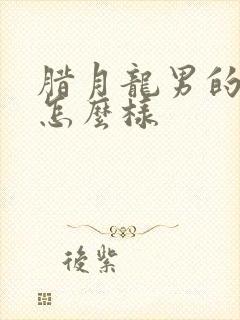 腊月龍男的
怎麼樣
後紫